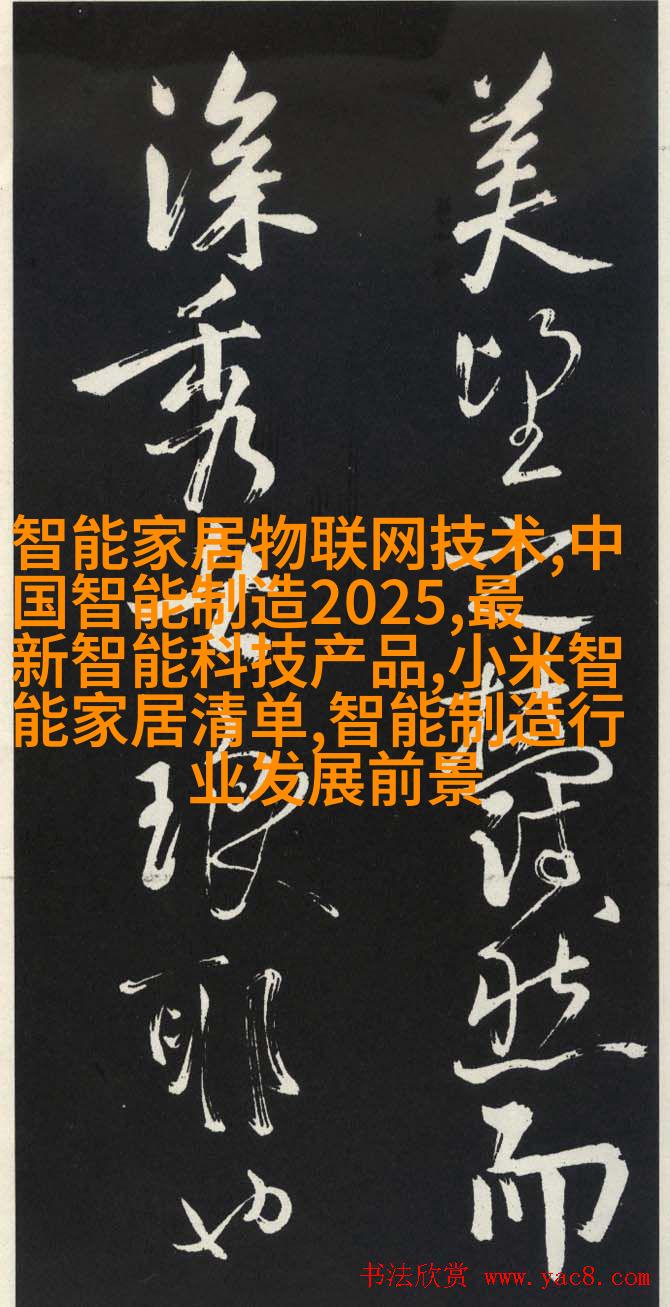 美望之蔚然而
深秀者琅耶也
智能家居物联网技术,中
国智能制造2025,最
新智能科技产品,小米智
能家居清单,智能制造行
业发展前景
书法欣赏 www.yac8.com